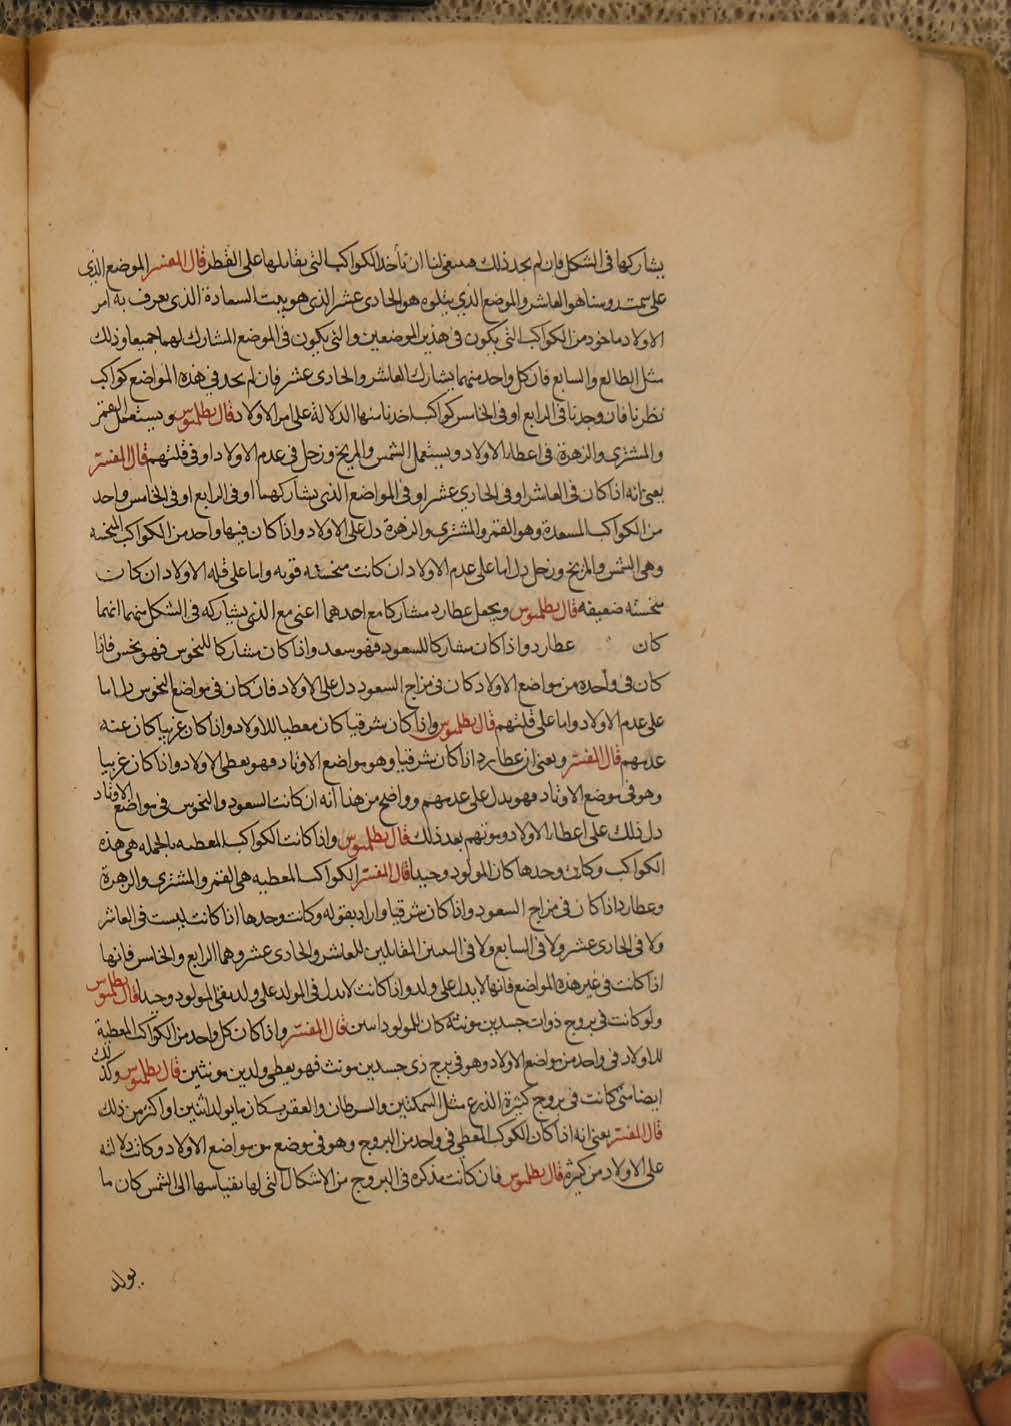 يشاركها في الشكل فان لم نجد ذلك فينبغي لنا ان نأخذ الكواكب التي تقابلها على القطر قال المفسر الموضع الذي
على سمت رؤسنا هو العاشر والموضع الذي يتلوه هو الحادي عشر الذي هو بيت السعادة الذي يعرف به امر
الاولاد ماخوذ من الكواكب التي يكون في هذين الموضعين والتي يكون في الموضع المشارك لهما جميعا وذلك
مثل الطالع والسابع فان كل واحد منهما يشارك العاشر والحادي عشر فان لم نجد في هذه المواضع كواكب
نظرنا فان وجدنا في الرابع او في الخامس كواكب اخذنا منها الدلالة على امر الاولاد قال بطلميوس ويستعمل القمر
والمشتري والزهرة في اعطاء الاولاد ويستعمل الشمس والمريخ وزحل في عدم الاولاد او في قلتهم قال المفسر
يعني انه اذا كان في العاشر او في الحادي عشر او في المواضع الذي يشاركهما او في الرابع او في الخامس واحد
من الكواكب المسعدة وهو القمر والمشتري والزهرة دل على الاولاد واذا كان فيها واحد من الكواكب المنحسه
وهي الشمس والمريخ وزحل دل اما على عدم الاولاد ان كانت منحسته قويه واما على قله الاولاد ان كان
منحسته ضعيفه قال بطلميوس ويجعل عطارد مشاركا مع احدهما اعني مع الذي يشاركه في الشكل منهما ايهما
كان عطارد واذا كان مشاركا للسعود فهو سعد واذا كان مشاركا للنحوس فهو نحس فاذا
كان في واحده من مواضع الاولاد كان في مزاج السعود دل على الاولاد فان كان في مواضع النحوس دل اما
على عدم الاولاد واما على قلتهم قال بطلميوس واذا كان شرقيا كان معطيا للاولاد واذا كان غربيا كان عنه
عدمهم قال المفسر ويعني ان عطارد اذا كان شرقيا وهو مواضع الاوتاد فهو يعطي الاولاد واذا كان غربيا
وهو في موضع الاوتاد فهو يدل على عدمهم وواضح من هذا انه ان كانت السعود والنحوس في مواضع الاوتاد
دل ذلك على اعطاء الاولاد وموتهم بعد ذلك قال بطلميوس واذا كانت الكواكب المعطيه بالجمله هي هذه
الكواكب وكانت وحدها كان المولود وحيدا قال المفسر الكواكب المعطيه هي القمر والمشتري والزهرة
وعطارد اذا كان في مزاج السعود واذا كان شرقيا واراد بقوله وكانت وحدها اذا كانت ليست في العاشر
ولا في الحادي عشر ولا في السابع ولا في البيتين المقابلين للعاشر والحادي عشر وهما الرابع والخامس فانها
اذا كانت في غير هذه المواضع فانها لا يدل على ولد واذا كانت لا يدل في المولد على ولد بقي المولود وحيدا قال بطلميوس
ولو كانت في بروج ذوات جسدين مونثة كان للمولود اسين قال المفسر واذا كان كل واحد من الكواكب المعطية
للاولاد في واحد من مواضع الاولاد وهو في برج ذي جسدين مونث فهو يعطي ولدين مونثين قال بطلميوس وكذلك
ايضا متى كانت في بروج كثيرة الذرع مثل السمكتين والسرطان والعقرب كان ما يولد اثنين او اكثر من ذلك
قال المفسر يعني انه اذا كان الكوكب المعطي في واحد من البروج وهو في موضع من مواضع الاولاد وكانت دلالته
على الاولاد من كثرة قال بطلميوس فان كانت مذكره في البروج من الاشكال التي لها بقياسها الى الشمس كان ما
يولد